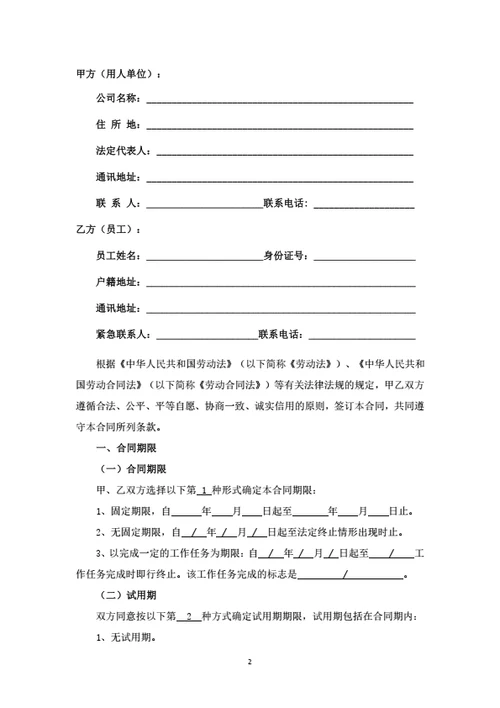 甲方（用人单位）：
公司名称：
住 所 地：
法定代表人：
通讯地址：
联 系 人： 联系电话：
乙方（员工）：
员工姓名： 身份证号：
户籍地址：
通讯地址：
紧急联系人： 联系电话：
根据《中华人民共和国劳动法》（以下简称《劳动法》）、《中华人民共和
国劳动合同法》（以下简称《劳动合同法》）等有关法律法规的规定，甲乙双方
遵循合法、公平、平等自愿、协商一致、诚实信用的原则，签订本合同，共同遵
守本合同所列条款。
一、合同期限
（一）合同期限
甲、乙双方选择以下第 1 种形式确定本合同期限：
1、固定期限，自 年 月 日起至 年 月 日止。
2、无固定期限，自 / 年 / 月 / 日起至法定终止情形出现时止。
3、以完成一定的工作任务为期限：自 / 年 / 月 / 日起至 / 工
作任务完成时即行终止。该工作任务完成的标志是 / 。
（二）试用期
双方同意按以下第 2 种方式确定试用期期限，试用期包括在合同期内：
1、无试用期。
2